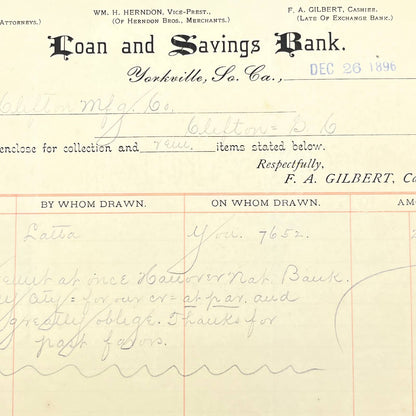 WM. H. HERNDON, VICE-PREST., F. A. GILBERT, CASHIER.
ATTORNEYS.) (OF HERNDON BROS., MERCHANTS.) (LATE OF EXCHANGE BANK.)
Loan and Savings Bank.
Yorkville, So. Ca., DEC 26 1896
Clifton Mfg Co.
Clifton S. C
enclose for collection and items stated below.
Respectfully,
F. A. GILBERT, Ca
BY WHOM DRAWN. ON WHOM DRAWN. AMO
Latta You. 7652.
remit at once Hanover Nat. Bank.
City = for our cr = at par. and
greatly oblige. Thanks for
past favors.